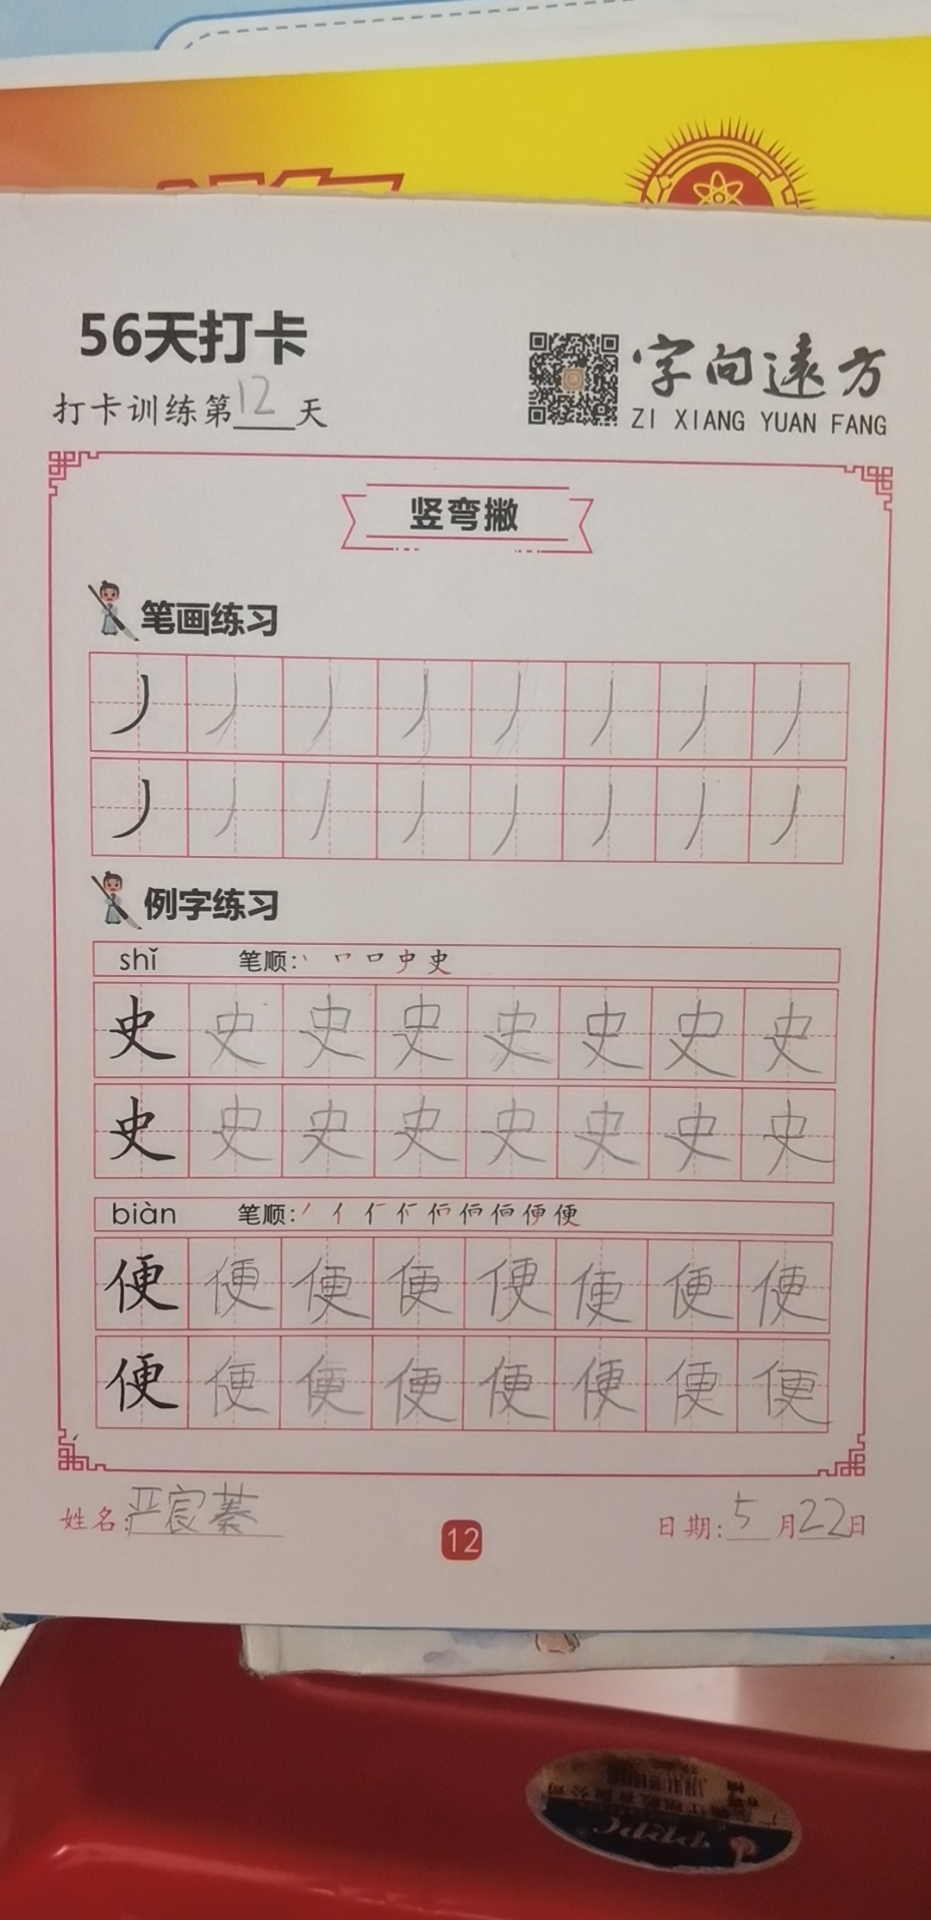 56天打卡
打卡训练第12天
字向遠方
ZI XIANG YUAN FANG
竖弯撇
笔画练习
丿 丿 丿 丿 丿 丿 丿 丿
丿 丿 丿 丿 丿 丿 丿 丿
例字练习
shǐ 笔顺: 丨 𠃍 口 史 史
史 史 史 史 史 史 史 史
史 史 史 史 史 史 史 史
biàn 笔顺:
便 便 便 便 便 便 便 便
便 便 便 便 便 便 便 便
姓名:严宸蓁
12
日期:5月22日